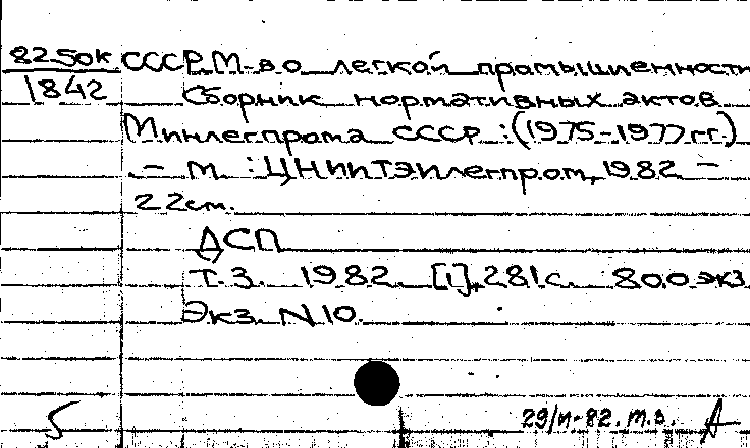 8250к СССР. М-во легкой промышленности
1842 Сборник нормативных актов
Минлегпрома СССР: (1975-1977 гг.)
. - М. : ЦНИИТЭИлегпром, 1982 -
22см.
ДСП
Т. 3. 1982. [1], 281 с. 800 экз
Экз. N 10.
5
29/IV-82. т.3. А